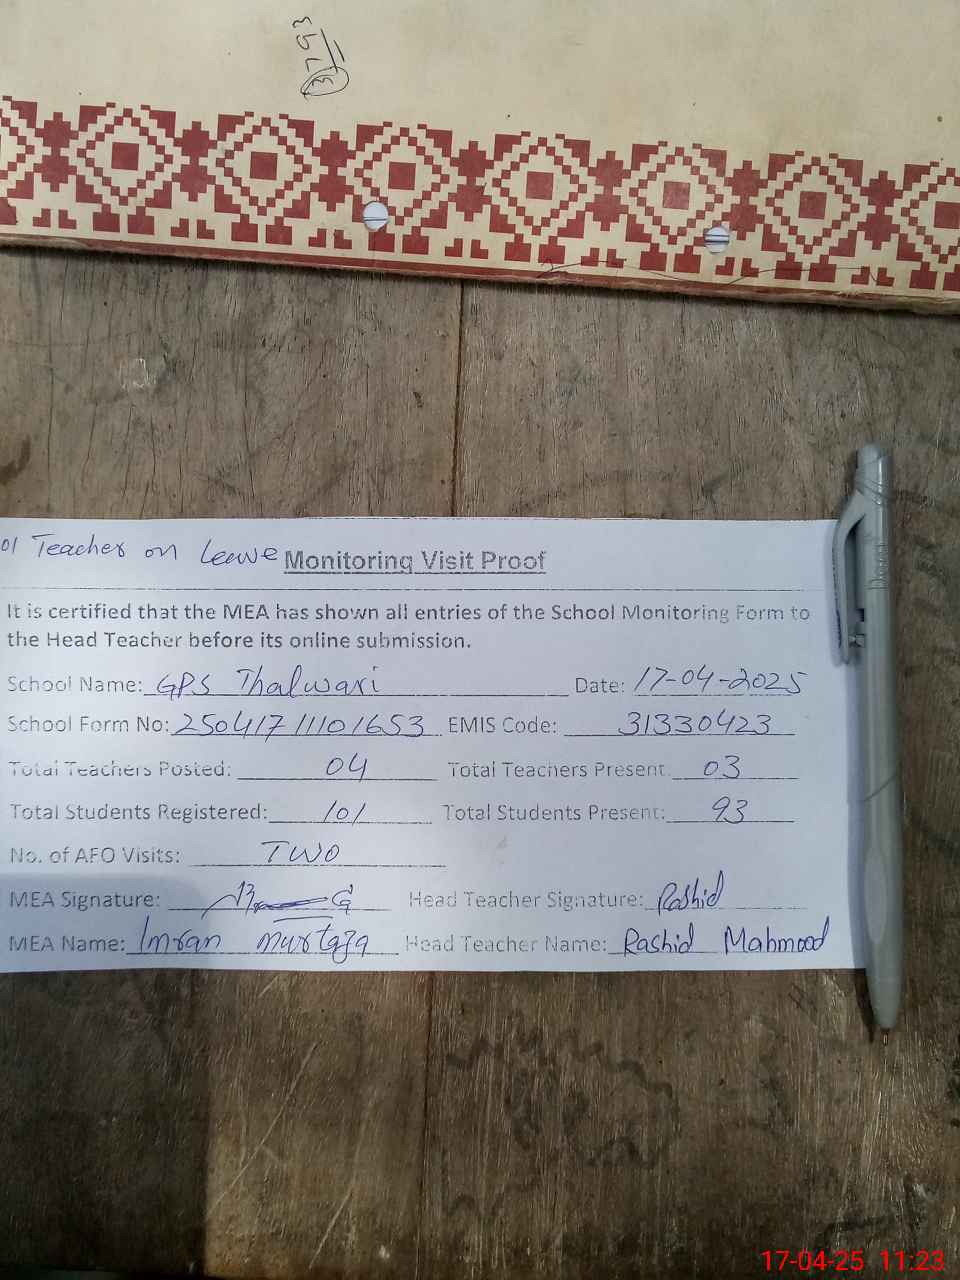 01 Teacher on Leave Monitoring Visit Proof
It is certified that the MEA has shown all entries of the School Monitoring Form to
the Head Teacher before its online submission.
School Name: GPS Thalwari Date: 17-04-2025
School Form No: 25041711101653 EMIS Code: 31330423
Total Teachers Posted: 04 Total Teachers Present: 03
Total Students Registered: 101 Total Students Present: 93
No. of AEO Visits: TWO
MEA Signature: Head Teacher Signature: Rashid
MEA Name: Imran Murtaza Head Teacher Name: Rashid Mahmood
17-04-25 11:23